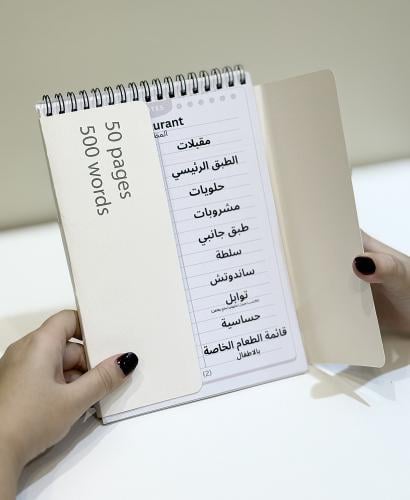 50 pages
500 words
TES
urant
مقبلات
الطبق الرئيسي
حلويات
مشروبات
طبق جانبي
سلطة
ساندوتش
توابل
حساسية
قائمة الطعام الخاصة
بالاطفال
(2)